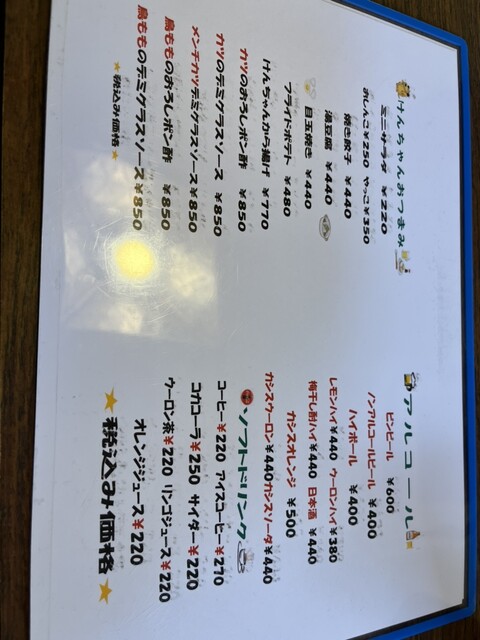 けんちゃんおつまみ
ミニサラダ ￥220
おしんこ￥250 やっこ￥350
焼き餃子 ￥440
湯豆腐 ￥440
目玉焼き ￥440
フライドポテト ￥480
けんちゃんから揚げ ￥770
カツのおろしポン酢 ￥850
カツのデミグラスソース ￥850
メンチカツデミグラスソース￥850
鳥もものおろしポン酢 ￥850
鳥もものデミグラスソース￥850
★税込み価格★
アルコール
ビンビール ￥600
ノンアルコールビール ￥400
ハイボール ￥400
レモンハイ￥440 ウーロンハイ￥380
梅干し酎ハイ￥440 日本酒 ￥440
カシスオレンジ ￥500
カシスウーロン￥440カシスソーダ￥440
ソフトドリンク
コーヒー￥220 アイスコーヒー￥270
コカコーラ￥250 サイダー￥220
ウーロン茶￥220 リンゴジュース￥220
オレンジジュース￥220
★税込み価格★